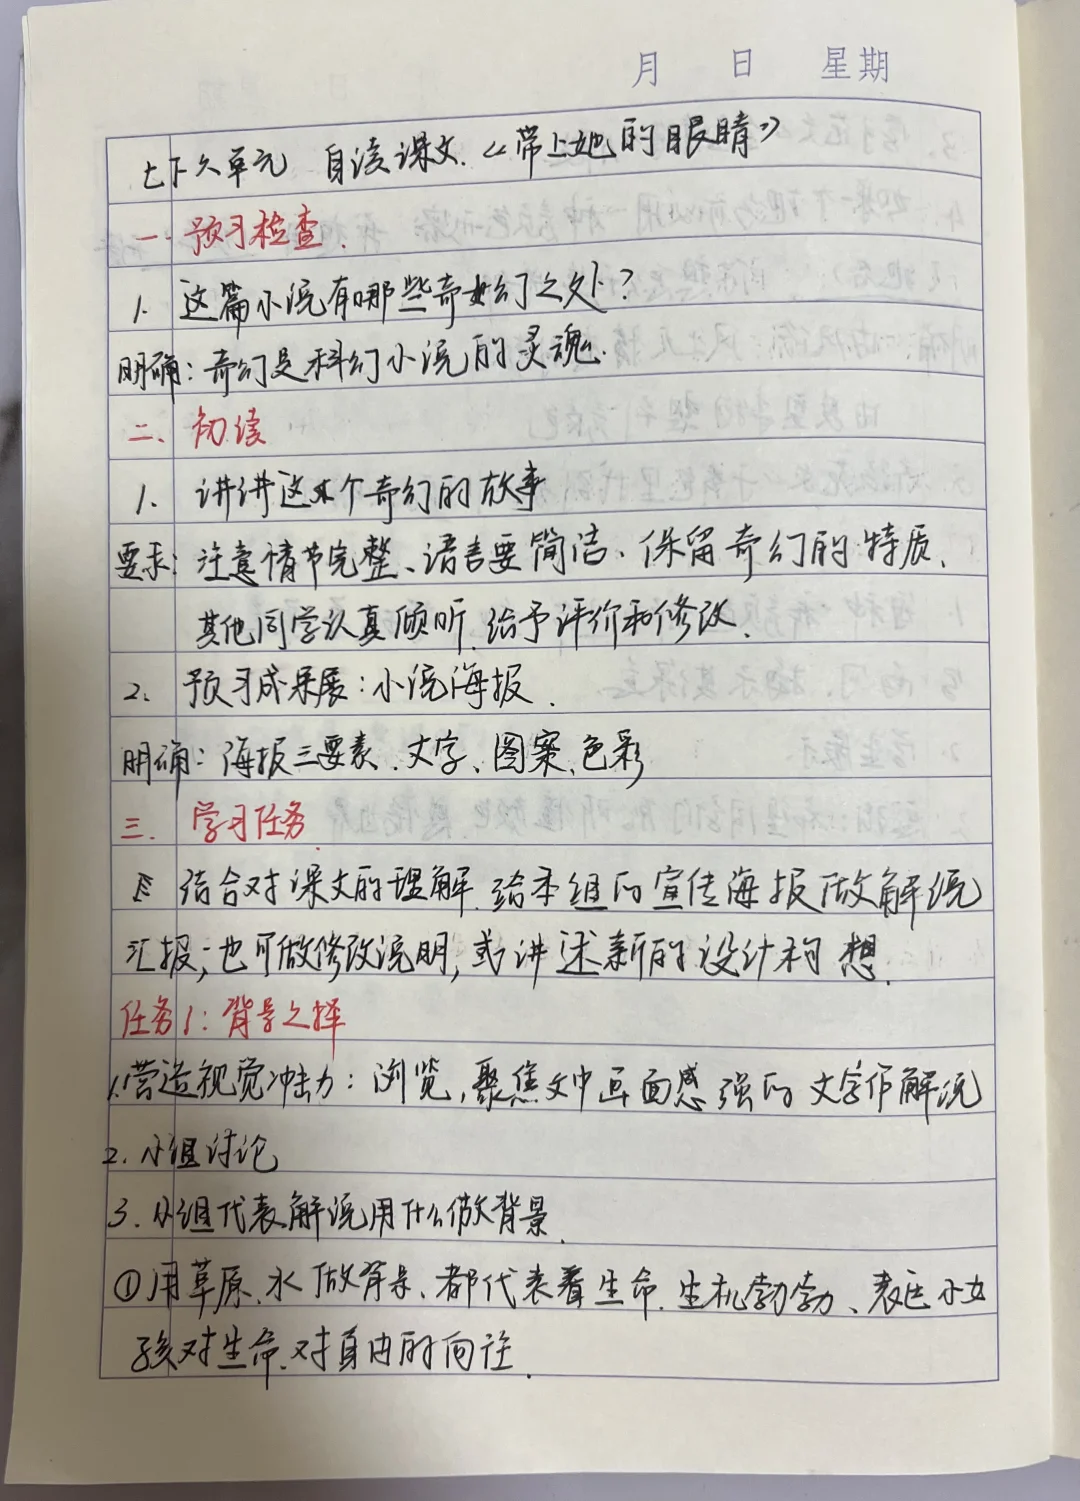 月 日 星期
七下六单元 自读课文《带上她的眼睛》
一. 预习检查.
1. 这篇小说有哪些奇幻之处?
明确: 奇幻是科幻小说的灵魂.
二、初读
1. 讲讲这个奇幻的故事
要求: 注意情节完整、语言要简洁、保留奇幻的特质.
其他同学认真倾听.给予评价和修改.
2、预习成果展:小说海报.
明确: 海报三要素、文字、图案、色彩
三. 学习任务
结合对课文的理解.给本组的宣传海报做解说
汇报;也可做修改说明,或讲述新的设计构想.
任务1:背景之择
1.营造视觉冲击力:浏览,聚焦文中画面感强的文字作解说
2.小组讨论
3.小组代表解说用什么做背景.
①用草原、水做背景、都代表着生命.生机勃勃、表达小女
孩对生命.对自由的向往.